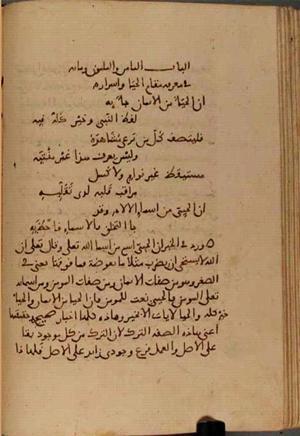 الباب الثامن والثلثون ومائة
في معرفة مقام الحيا واسراره
ان الحيا من الايمان جاء به
لفظ النبي وخير كله فيه
فليتصف كل من يرعى مشاهده
وليس يعرف هذا غير منتبه
مستيقظ غير نوام ولا كسل
مراقب قلبه لدى تقلبه
ان الحيي من اسماء الاله وقد
جا التخلق بالاسماء فاحظ به
ورد في الخبر ان الحيي اسم من اسما الله تعالى وقال تعالى ان
الله لا يستحيي ان يضرب مثلا ما بعوضة فما فوقها يعني في
الصغر وهو من صفات الايمان ومن صفات المومن ومن اسمائه
تعالى المومن فالحيي نعت للمومن فان الحيا من الايمان والحيا
خير كله والحيا لا ياتي الا بخير وهذه كلها اخبار صحيحة وحقيقتها
اعني هذه الصفه الترك لان الترك من كل موجود بقا
على الاصل والعمل فرع وجودي زايد على الاصل فلهذا قا